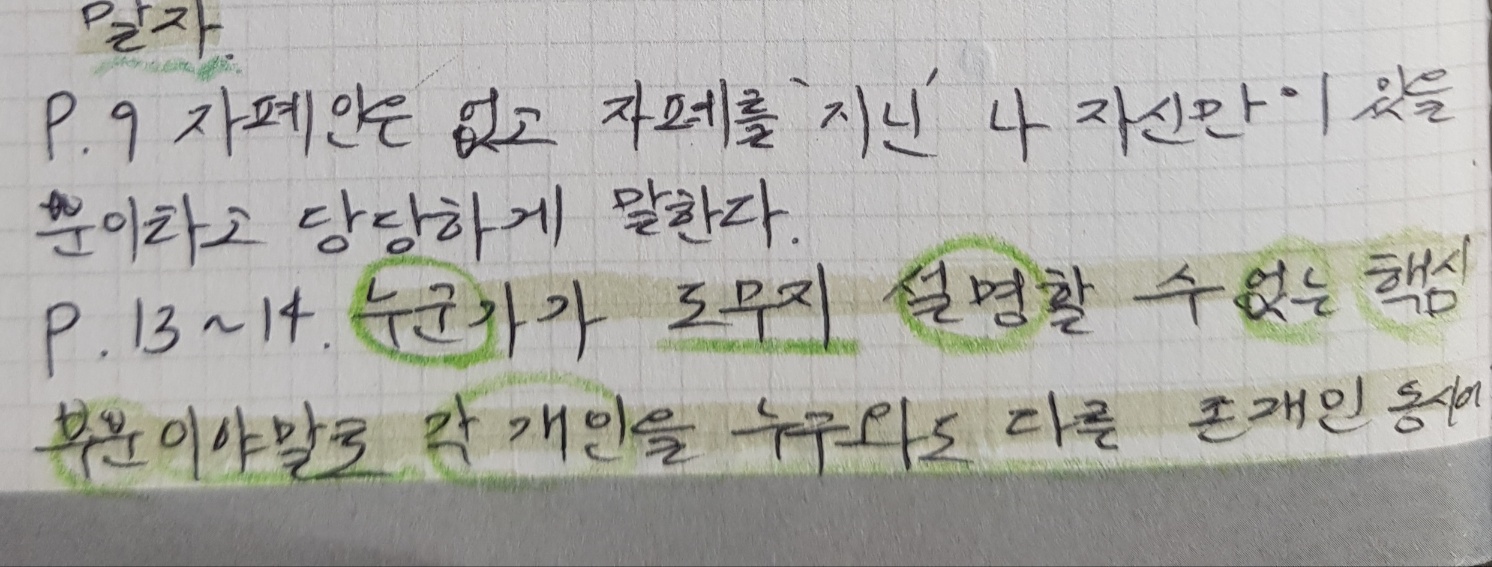 말자.
P. 9 자폐인은 없고 자폐를 '지닌' 나 자신만이 있을
뿐이라고 당당하게 말한다.
P. 13~14. 누군가가 도무지 설명할 수 없는 핵심
부분이야말로 각 개인을 누구와도 다른 존재인 동시에